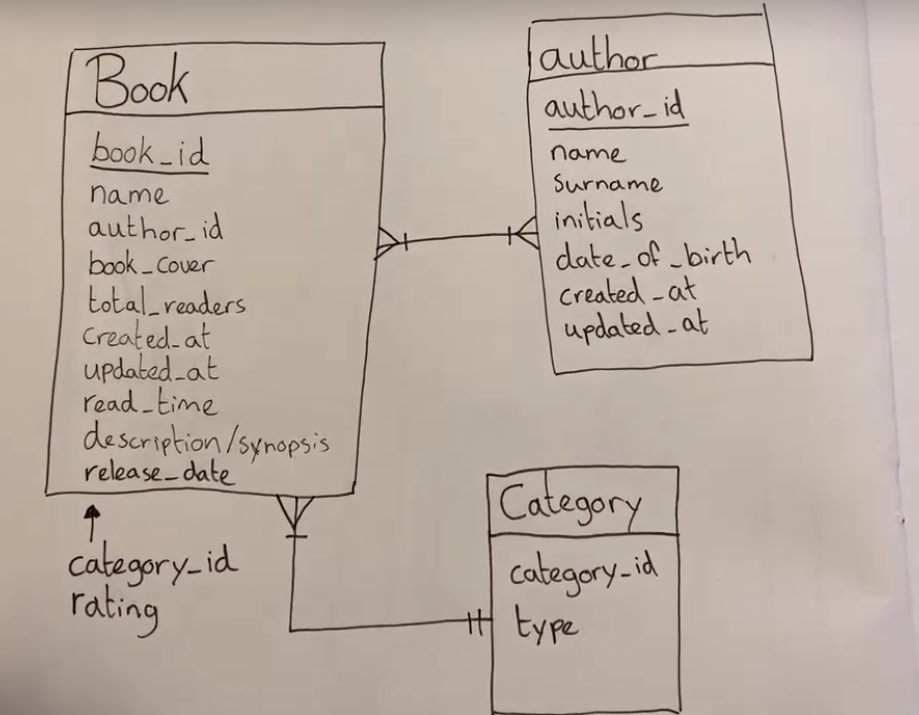 Book
book_id
name
author_id
book_cover
total_readers
created_at
updated_at
read_time
description/synopsis
release_date
category_id
rating
author
author_id
name
surname
initials
date_of_birth
created_at
updated_at
Category
category_id
type